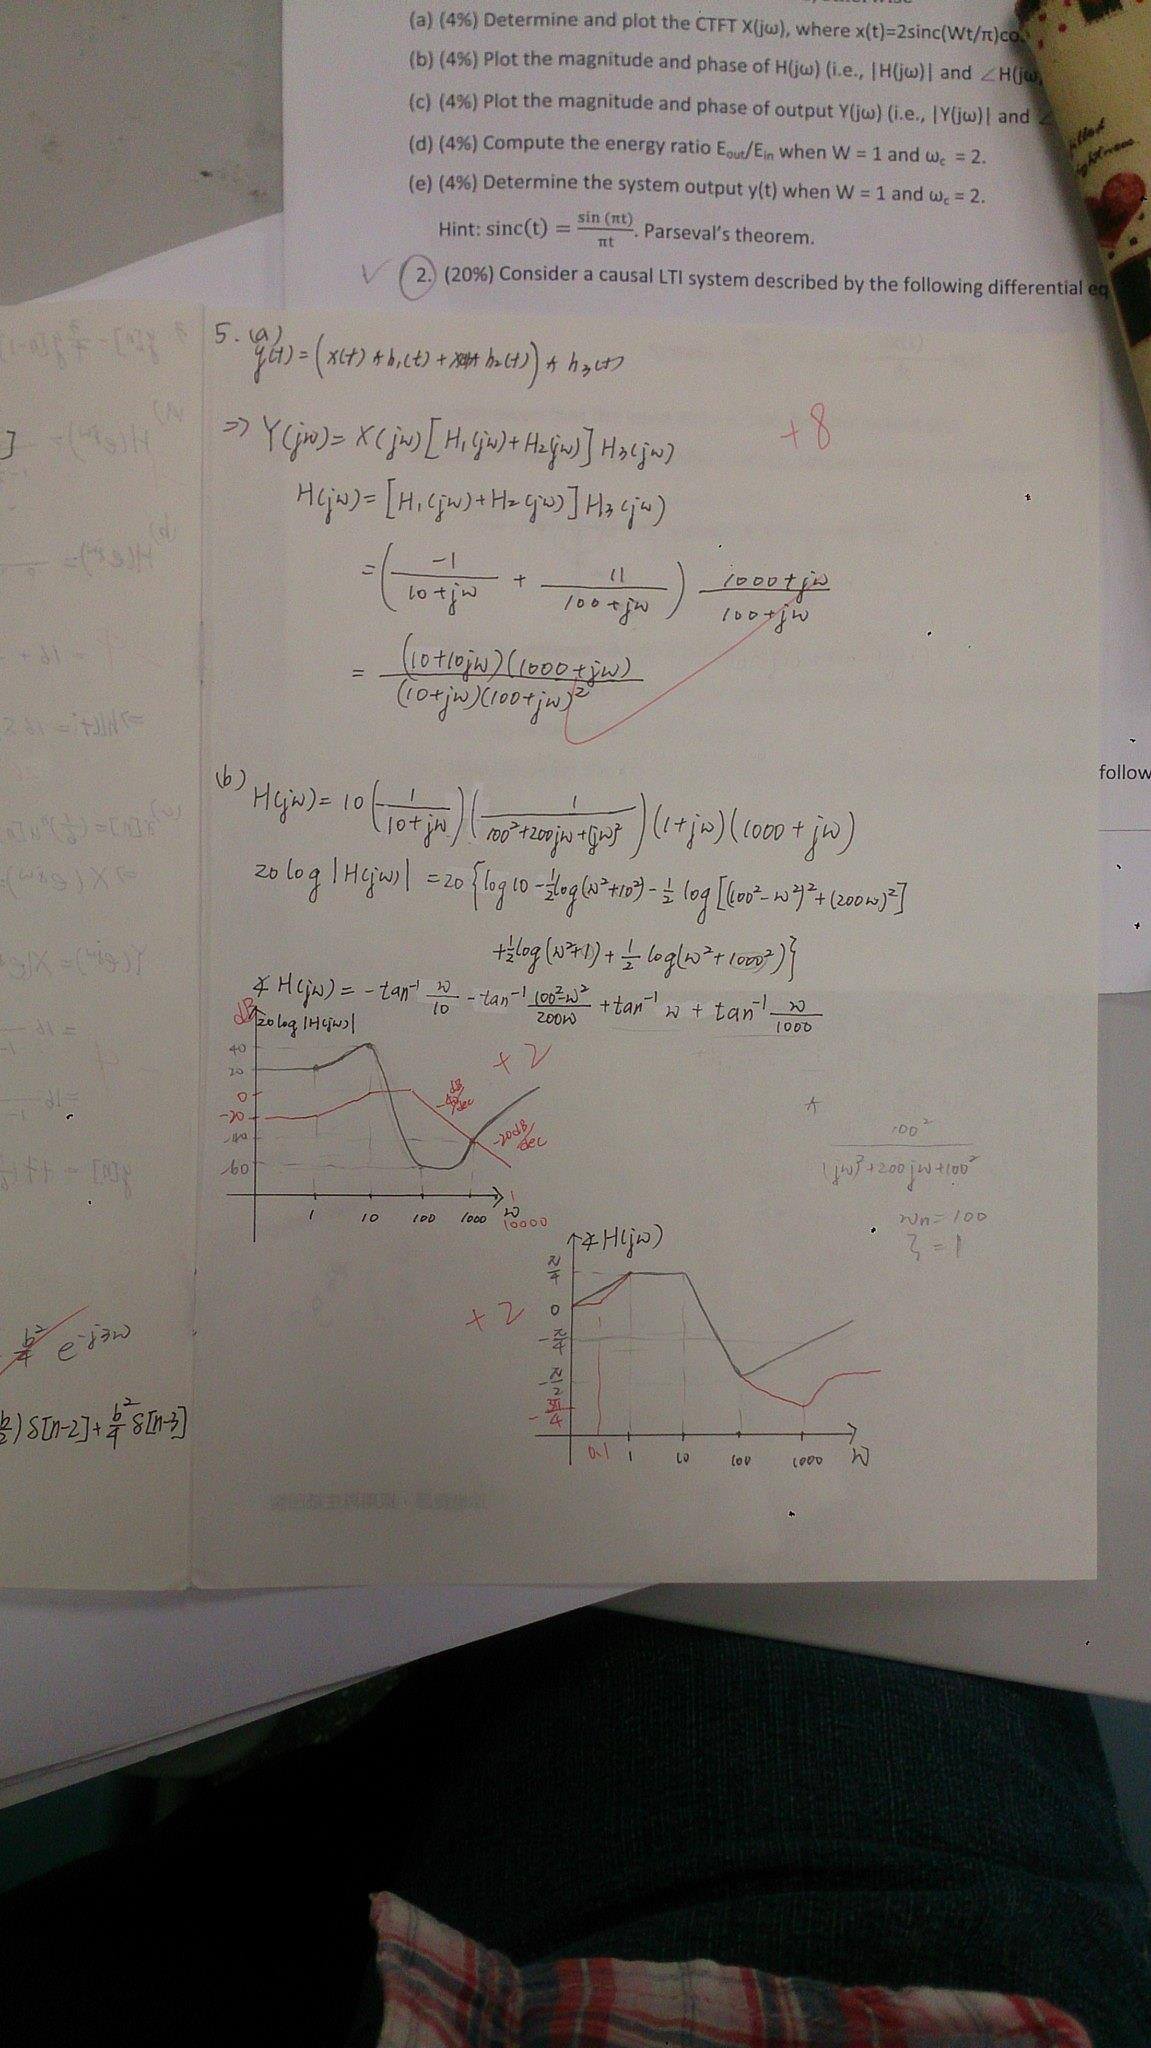 (a) (4%) Determine and plot the CTFT X(jω), where x(t)=2sinc(Wt/π)co
(b) (4%) Plot the magnitude and phase of H(jω) (i.e., |H(jω)| and ∠H(jω
(c) (4%) Plot the magnitude and phase of output Y(jω) (i.e., |Y(jω)| and ∠
(d) (4%) Compute the energy ratio E_out/E_in when W = 1 and ω_c = 2.
(e) (4%) Determine the system output y(t) when W = 1 and ω_c = 2.
Hint: sinc(t) = sin (πt)/πt. Parseval's theorem.
2. (20%) Consider a causal LTI system described by the following differential eq
follow
5. (a)
y(t) = (x(t) * h₁(t) + x(t) * h₂(t)) * h₃(t)
⇒ Y(jw) = X(jw) [H₁(jw) + H₂(jw)] H₃(jw)
+8
H(jw) = [H₁(jw) + H₂(jw)] H₃(jw)
= (-1/(10+jw) + 11/(100+jw)) (1000+jw)/(100+jw)
= (10+10jw)(1000+jw)/(10+jw)(100+jw)²
(b) H(jw) = 10 (1/(10+jw)) (1/(100²+200jw+(jw)²)) (1+jw)(1000+jw)
20 log |H(jw)| = 20 {log 10 - ½log(w²+10²) - ½ log[(100²-w²)²+(200w)²]
+½log(w²+1) + ½ log(w²+1000²)}
∡ H(jw) = -tan⁻¹ w/10 - tan⁻¹ (100²-w²)/200w + tan⁻¹ w + tan⁻¹ w/1000
dB
20 log |H(jw)|
+2
40
20
0
-20
-40
-60
-40 dB/dec
-20dB/dec
1 10 100 1000 w
10000
100²/((jw)²+200jw+100²)
wn=100
ζ=1
∡H(jw)
+2
π/4
0
-π/4
-π/2
-3π/4
0.1 1 10 100 1000 w
b²/4 e^-j3w
δ[n-2]+b²/4 δ[n-3]